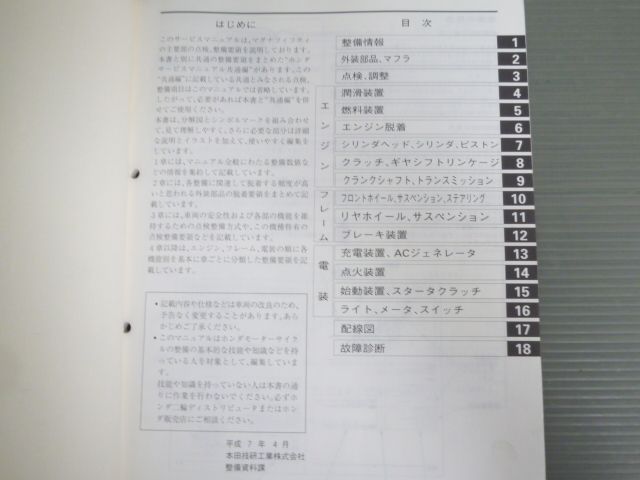 はじめに
このサービスマニュアルは、マグナフィフティ
の主要部の点検、整備要領を説明しております。
本書と別に共通の整備要領をまとめた"ホンダ
サービスマニュアル共通編"があります。この
"共通編"に記載している共通とみなされる点検、
整備項目はこのマニュアルでは省略しています。
したがって、必要があれば本書と"共通編"を併
せてご使用ください。
本書は、分解図とシンボルマークを組み合わせ
て、見て理解しやすく、さらに必要な部分は詳細
な説明とイラストを加えて、使いやすく編集を
しています。
1章には、マニュアル全般にわたる整備数値な
どの情報を集約して記載しています。
2章には、各整備に関連して脱着する頻度が高
いと思われる外装部品の脱着要領を記載してい
ます。
3章には、車両の安全性および各部の機能を維
持するための点検整備方式や、この機種特有の
点検整備要領などを記載しています。
4章以降は、エンジン、フレーム、電装の類に各
機能別を基本に章ごとに分類した整備要領を記
載しています。
• 記載内容や仕様などは車両の改良のため、
予告なく変更することがあります。あら
かじめご了承ください。
• このマニュアルはホンダモーターサイク
ルの整備の基本的な技能や知識などを持
っている人を対象として、編集しています。
技能や知識を持っていない人は本書の通
りに作業を行わないでください。必ずホ
ンダ二輪ディストリビュータまたはホン
ダ販売店にご相談ください。
平成 7 年 4 月
本田技研工業株式会社
整備資料課
目 次
整備情報 1
外装部品、マフラ 2
点検、調整 3
エンジン
潤滑装置 4
燃料装置 5
エンジン脱着 6
シリンダヘッド、シリンダ、ピストン 7
クラッチ、ギヤシフトリンケージ 8
クランクシャフト、トランスミッション 9
フレーム
フロントホイール、サスペンション、ステアリング 10
リヤホイール、サスペンション 11
ブレーキ装置 12
電装
充電装置、ACジェネレータ 13
点火装置 14
始動装置、スタータクラッチ 15
ライト、メータ、スイッチ 16
配線図 17
故障診断 18